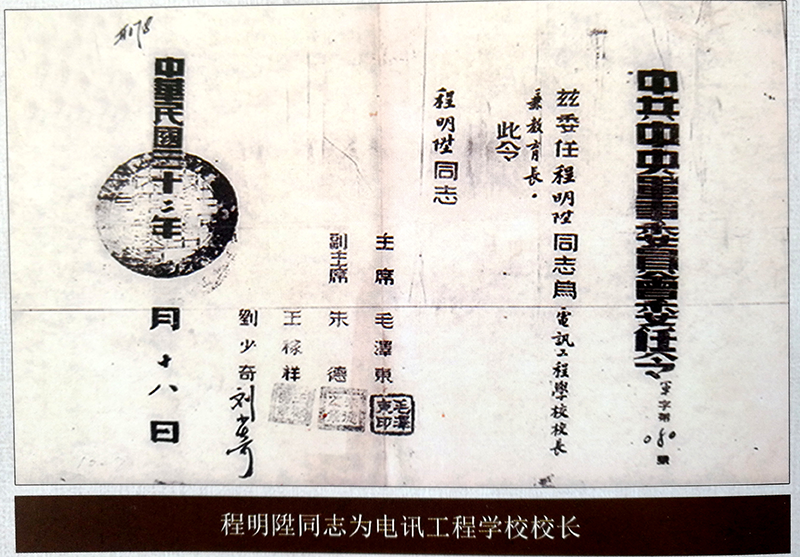 中共中央軍事委員會委任令
軍字第
080
號
兹委任程明陞同志為電訊工程學校校長
兼教育長。
此令
程明陞同志
主席 毛澤東
毛澤東印
副主席 朱德
王稼祥
劉少奇
刘少奇
中華民國三十二年 月十八日
程明陞同志为电讯工程学校校长